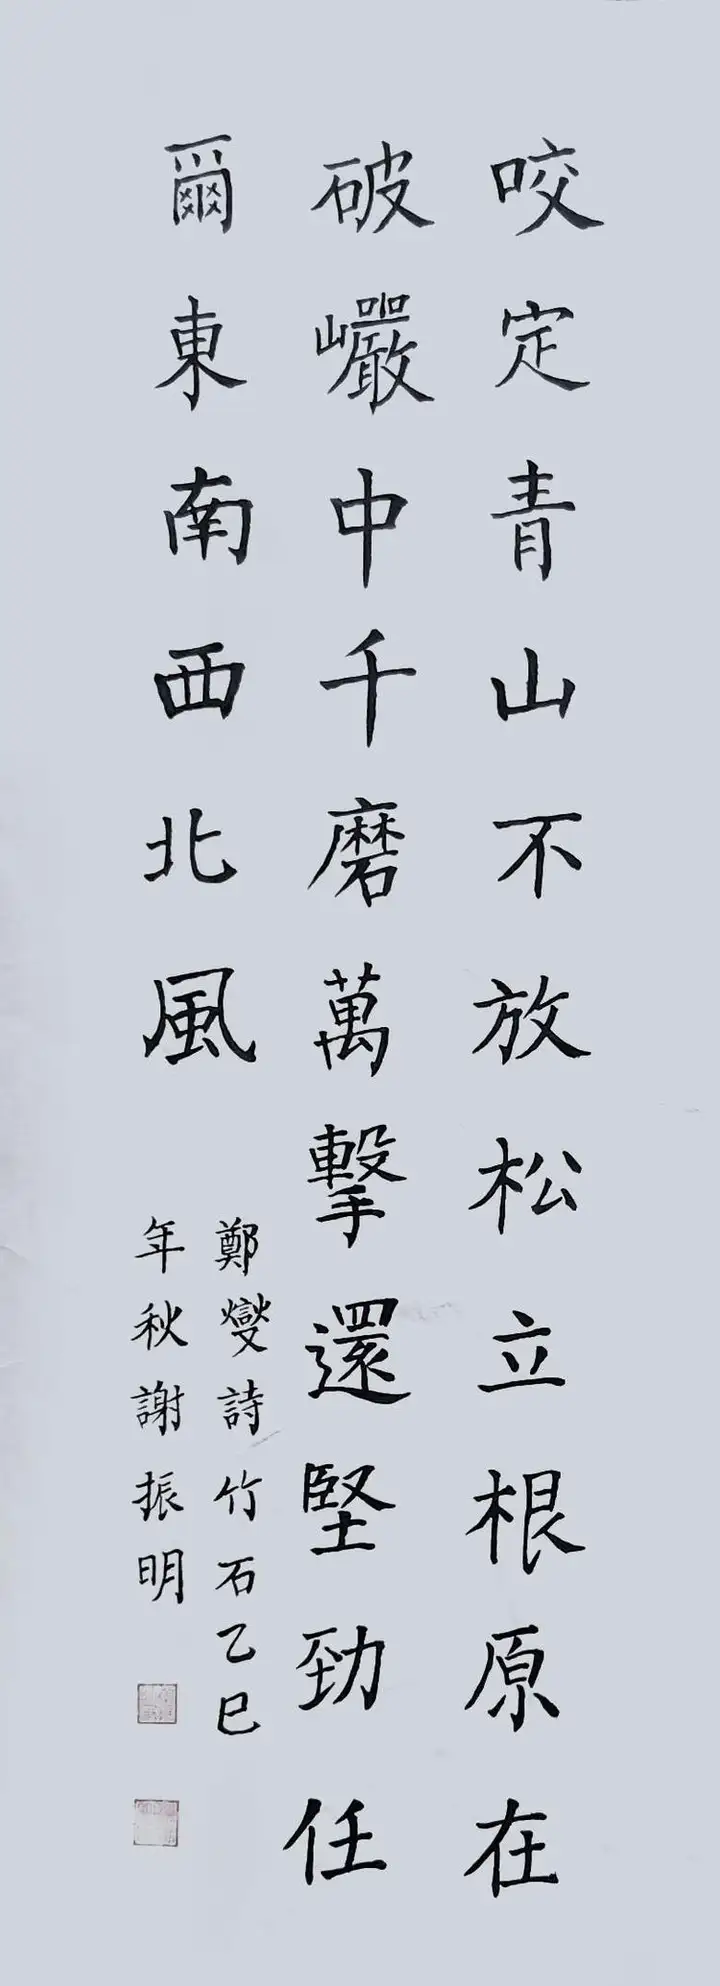 咬定青山不放松立根原在
破巖中千磨萬擊還堅勁任
爾東南西北風
鄭燮詩竹石乙巳
年秋謝振明